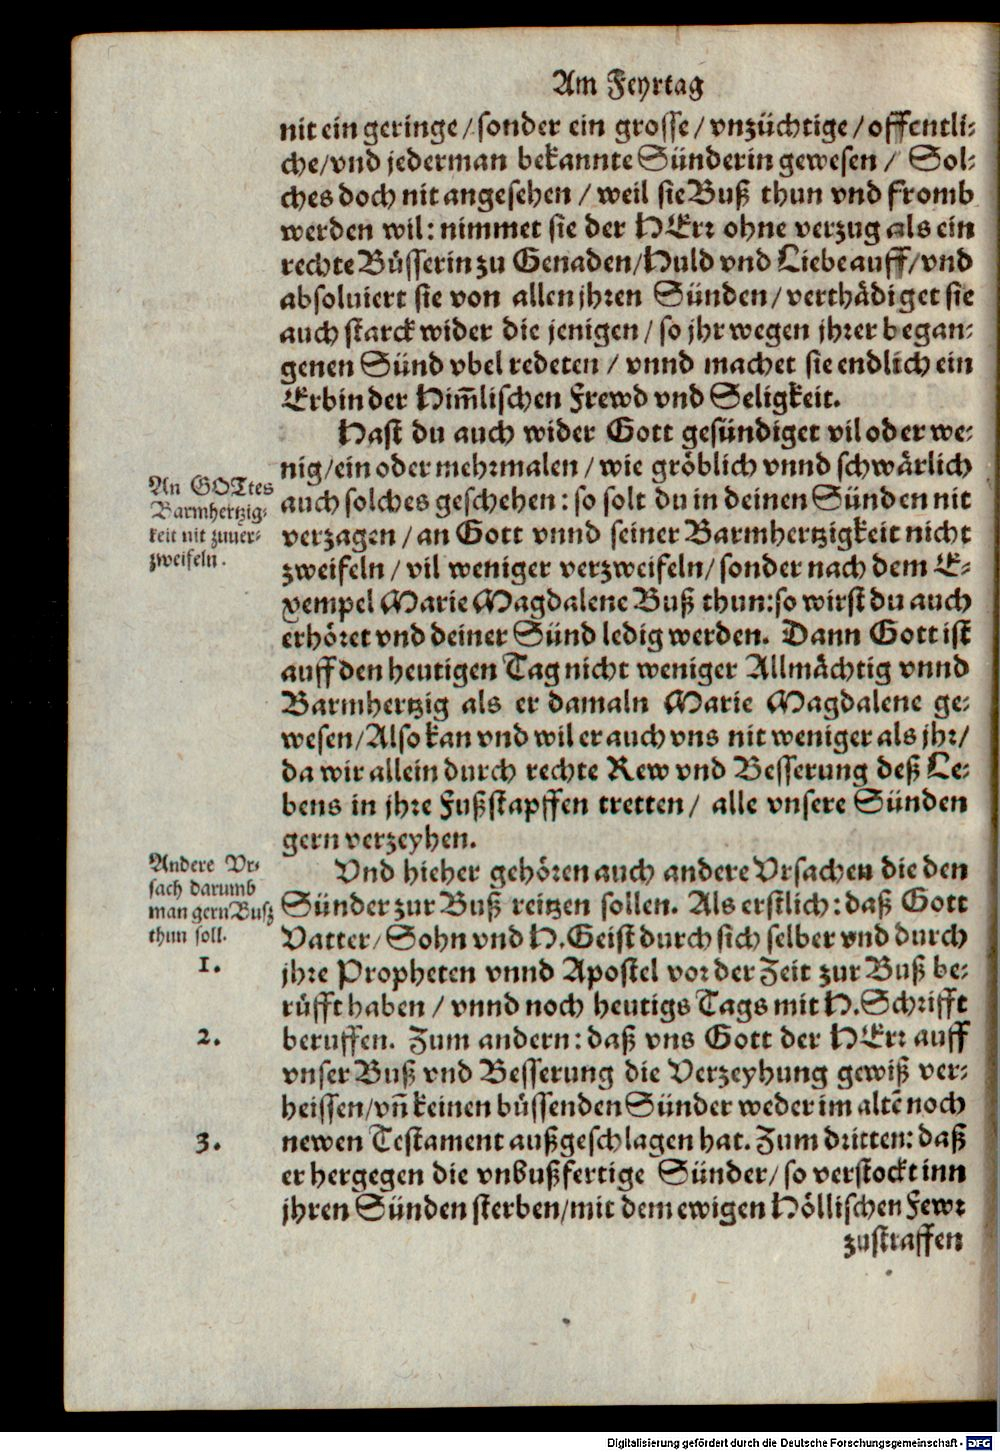 Am Feyrtag
nit ein geringe / sonder ein grosse / vnzüchtige / offentli-
che / vnd jederman bekannte Sünderin gewesen / Sol-
ches doch nit angesehen / weil sie Buß thun vnd fromb
werden wil: nimmet sie der HErr ohne verzug als ein
rechte Büsserin zu Genaden / Huld vnd Liebe auff / vnd
absoluiert sie von allen jhren Sünden / verthädiget sie
auch starck wider die jenigen / so jhr wegen jhrer began-
genen Sünd vbel redeten / vnnd machet sie endlich ein
Erbin der Him̃lischen Frewd vnd Seligkeit.
Hast du auch wider Gott gesündiget vil oder we-
nig / ein oder mehrmalen / wie gröblich vnnd schwärlich
An GOTtes
Barmhertzig-
keit nit zuuer-
zweifeln.
auch solches geschehen: so solt du in deinen Sünden nit
verzagen / an Gott vnnd seiner Barmhertzigkeit nicht
zweifeln / vil weniger verzweifeln / sonder nach dem E-
xempel Marie Magdalene Buß thun: so wirst du auch
erhöret vnd deiner Sünd ledig werden. Dann Gott ist
auff den heutigen Tag nicht weniger Allmächtig vnnd
Barmhertzig als er damaln Marie Magdalene ge-
wesen / Also kan vnd wil er auch vns nit weniger als jhr /
da wir allein durch rechte Rew vnd Besserung deß Le-
bens in jhre Fußstapffen tretten / alle vnsere Sünden
gern verzeyhen.
Andere Vr-
sach darumb
man gern Busz
thun soll.
Vnd hieher gehören auch andere Vrsachen die den
Sünder zur Buß reitzen sollen. Als erstlich: daß Gott
Vatter / Sohn vnd H. Geist durch sich selber vnd durch
1.
jhre Propheten vnnd Apostel vor der Zeit zur Buß be-
rüfft haben / vnnd noch heutigs Tags mit H. Schrifft
2.
beruffen. Zum andern: daß vns Gott der HErr auff
vnser Buß vnd Besserung die Verzeyhung gewiß ver-
heissen / vñ keinen büssenden Sünder weder im altẽ noch
3.
newen Testament außgeschlagen hat. Zum dritten: daß
er hergegen die vnbußfertige Sünder / so verstockt inn
jhren Sünden sterben / mit dem ewigen Höllischen Fewr
zustraffen
Digitalisierung gefördert durch die Deutsche Forschungsgemeinschaft - DFG